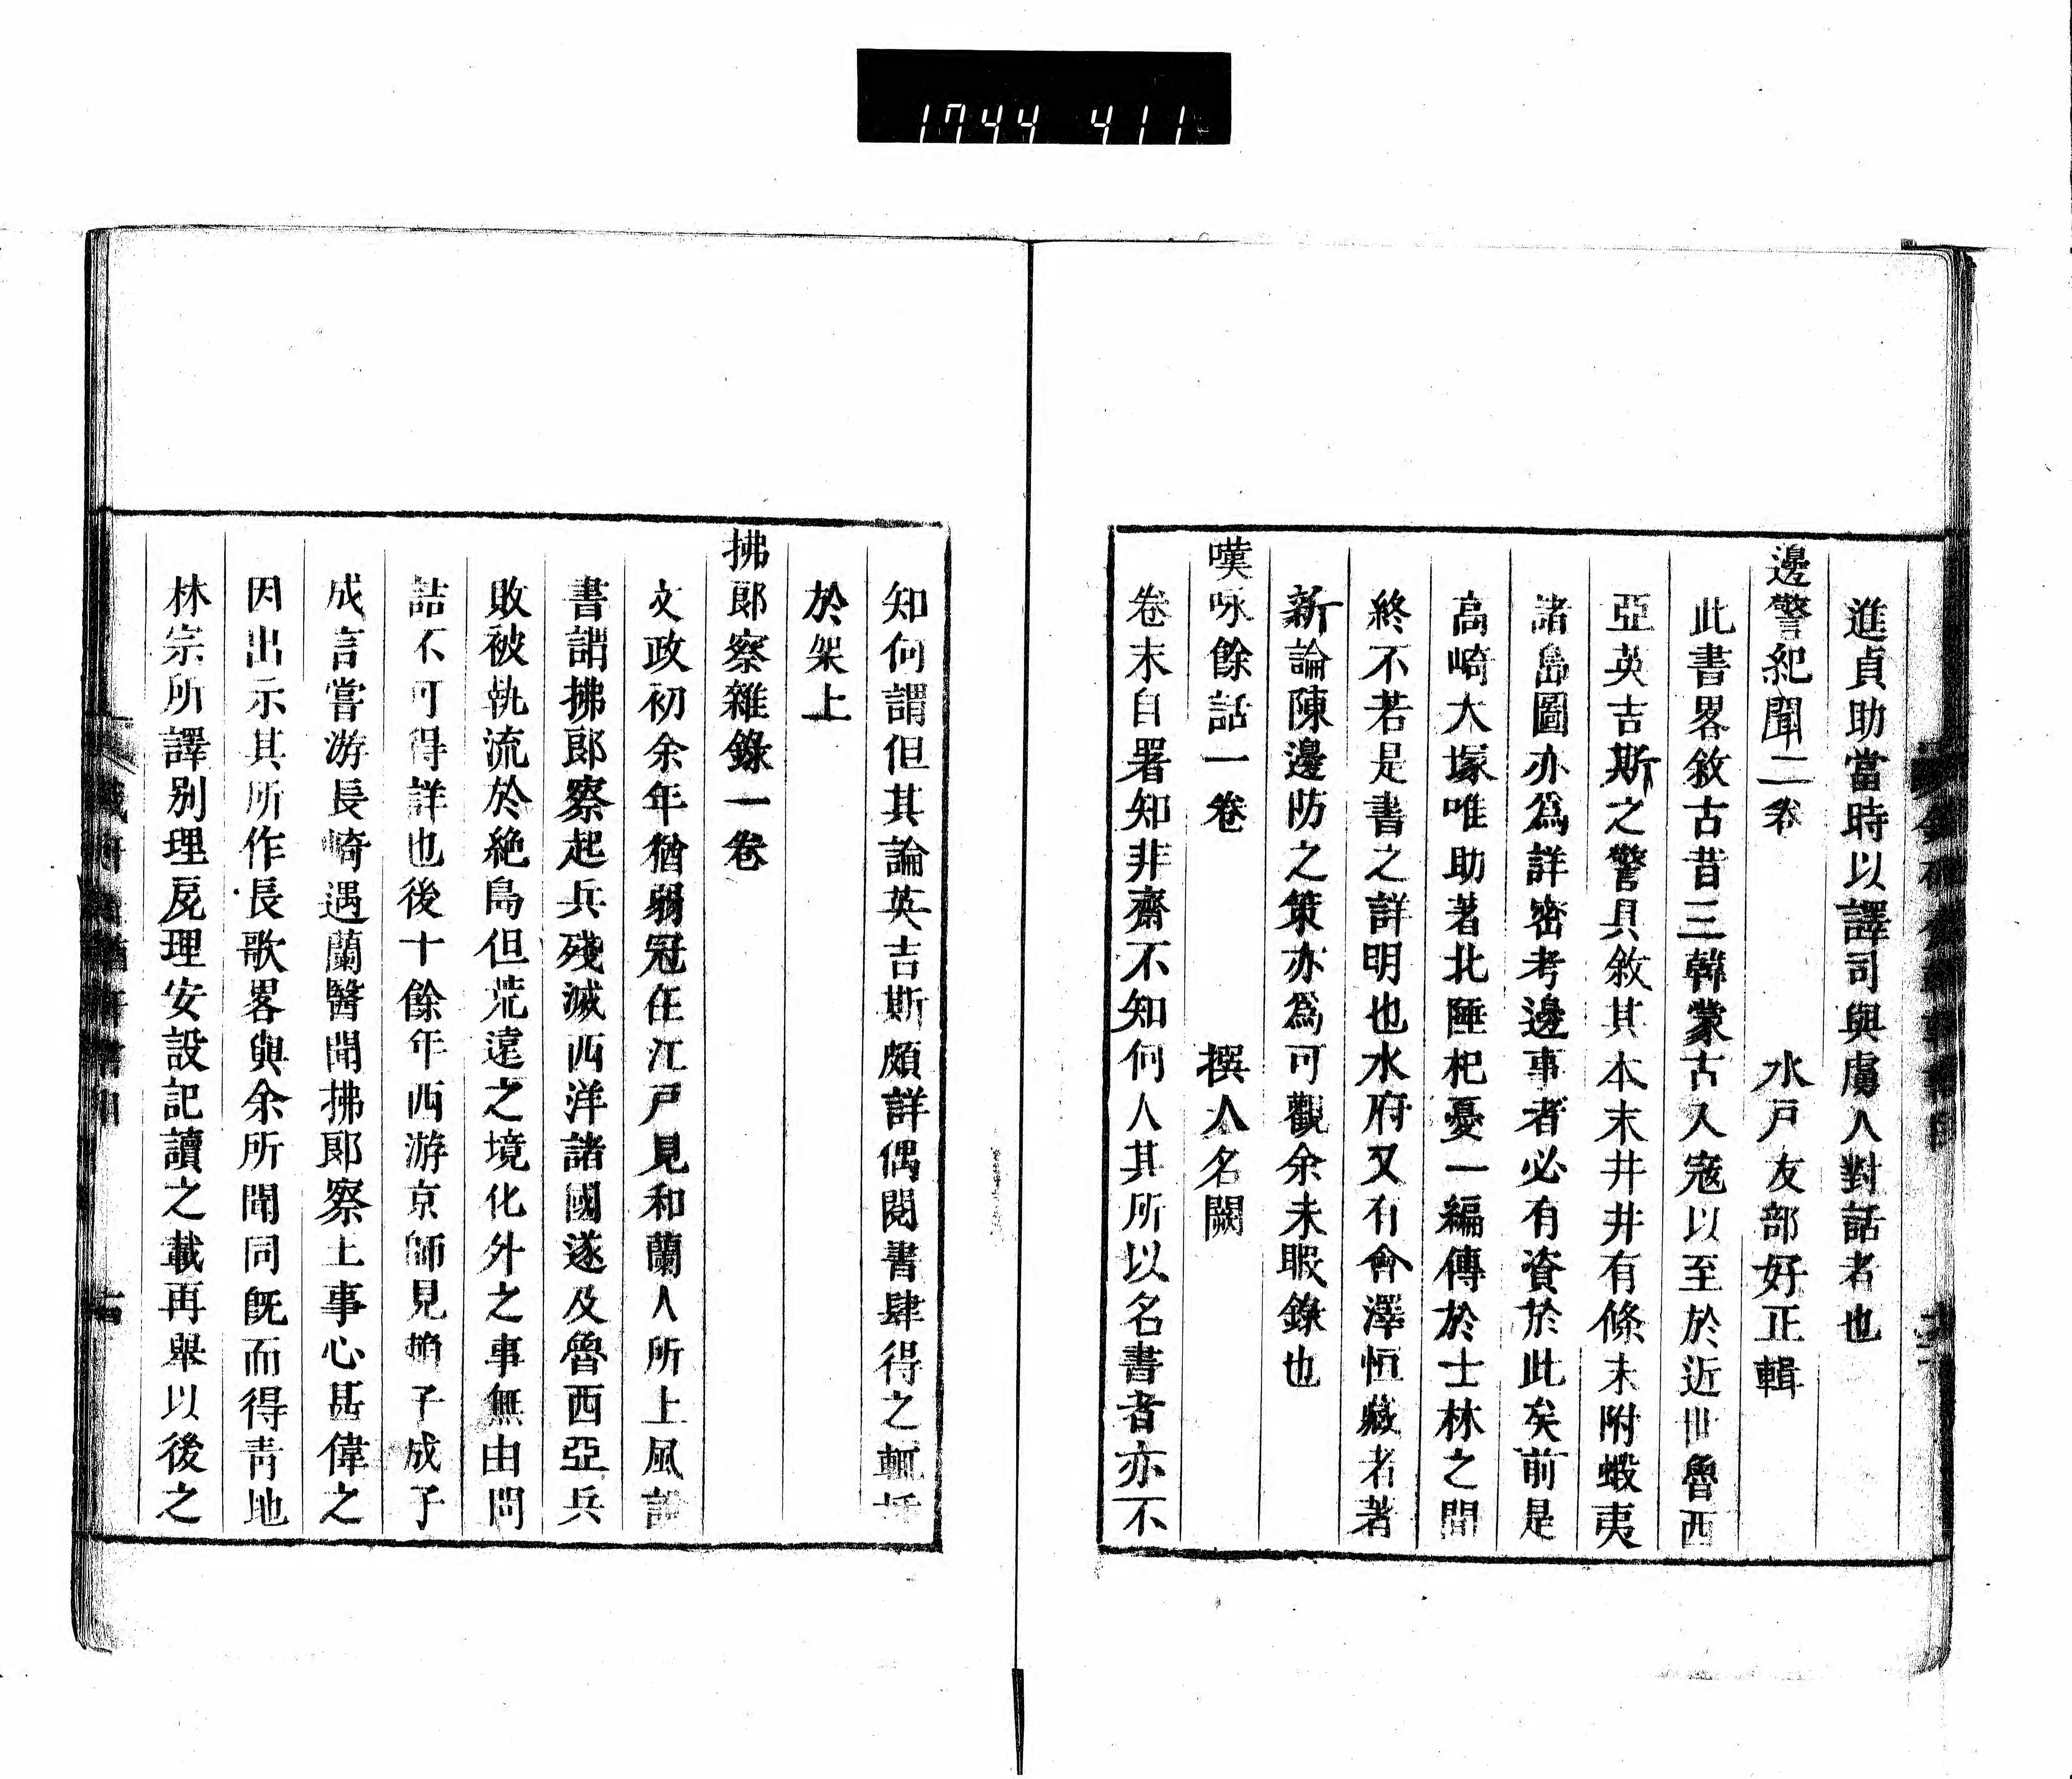 1744 411
進貞助當時以譯司與虜人對話者也
邊警紀聞二卷 水戸友部好正輯
此書畧敘古昔三韓蒙古入寇以至於近世魯西
亞英吉斯之警具敘其本末井井有條末附蝦夷
諸島圖亦爲詳密考邊事者必有資於此矣前是
高崎大塚唯助著北陲杞憂一編傳於士林之間
終不若是書之詳明也水府又有會澤恒藏者著
新論陳邊防之策亦爲可觀余未暇錄也
嘆咏餘話一卷 撰人名闕
卷末自署知非齋不知何人其所以名書者亦不
知何謂但其論英吉斯頗詳偶閱書肆得之輒插
於架上
拂郎察雜錄一卷
文政初余年猶弱冠在江戸見和蘭人所上風說
書謂拂郎察起兵殘滅西洋諸國遂及魯西亞兵
敗被執流於絶島但荒遠之境化外之事無由問
詰不可得詳也後十餘年西游京師見賴子成子
成言嘗游長崎遇蘭醫聞拂郎察王事心甚偉之
因出示其所作長歌畧與余所聞同旣而得靑地
林宗所譯別理戻理安設記讀之載再舉以後之